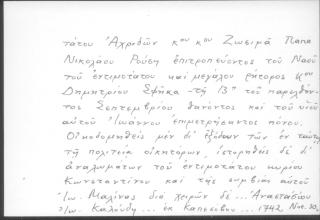 τάτου Ἀχριδῶν κου κου Ζωσιμᾶ Παπα
Νικολάου Ρούση ἐπιτροπεύοντος τοῦ Ναοῦ
τοῦ ἐντιμοτάτου καὶ μεγάλου ῥήτορος κου
Δημητρίου Σφήκα τῇ 13ῃ τοῦ παρελθόν-
τος Σεπτεμβρίου θανόντος καὶ τοῦ υἱοῦ
αὐτοῦ Ἰωάννου ἐπιμετρήσαντος πόνου.
Οἰκοδομηθεὶς μὲν δι' ἐξόδων τῶν ἐν ταύτῃ
τῇ πολιτείᾳ οἰκητόρων, ἱστορηθεὶς δὲ δι'
ἀναλωμάτων τοῦ ἐντιμοτάτου κυρίου
Κωνσταντίνου καὶ τῆς συμβίας αὐτοῦ
Μαλίνας διὰ χειρῶν δὲ ... Ἀναστασίου
Ἰω. Καλούδη ... ἐκ Καπεσόβου ... 1742, Νοε. 30,